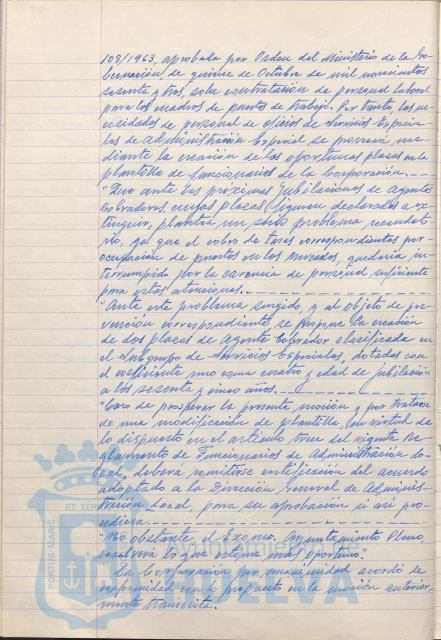 108/1963, aprobada por Orden del Ministerio de la Go-
bernación, de quince de Octubre de mil novecientos
sesenta y tres, sobre contratación de personal laboral
para los cuadros de puestos de trabajo. Por tanto las ne-
cesidades de personal de oficios de Servicios Especia-
les de Administración Especial se proveerá me-
diante la creación de las oportunas plazas en la
plantilla de funcionarios de la Corporación.
"Que ante las próximas jubilaciones de Agentes
Cobradores, cuyas plazas figuran declaradas a ex-
tinguir, plantea un serio problema recaudato-
rio, ya que el cobro de tasas correspondientes por
ocupación de puestos en los mercados, quedaría in-
terrumpido por la carencia de personal suficiente
para estas atenciones.
"Ante este problema surgido, y al objeto de pre-
vención correspondiente se propone la creación
de dos plazas de Agente Cobrador clasificada en
el Subgrupo de Servicios Especiales, dotados con
el coeficiente uno coma cuatro y edad de jubilación
a los sesenta y cinco años.
"Caso de prosperar la presente moción y por tratarse
de una modificación de plantilla, en virtud de
lo dispuesto en el artículo trece del vigente Re-
glamento de Funcionarios de Administración Lo-
cal, deberá remitirse certificación del acuerdo
adoptado a la Dirección General de Adminis-
tración Local, para su aprobación si así pro-
cediera.
"No obstante, el Excmo. Ayuntamiento Pleno,
resolverá lo que estime más oportuno."
La Corporación por unanimidad acordó de
conformidad con lo propuesto en la moción anterior-
mente transcrita.
PORTUS MARIS
ET TER
HUELVA